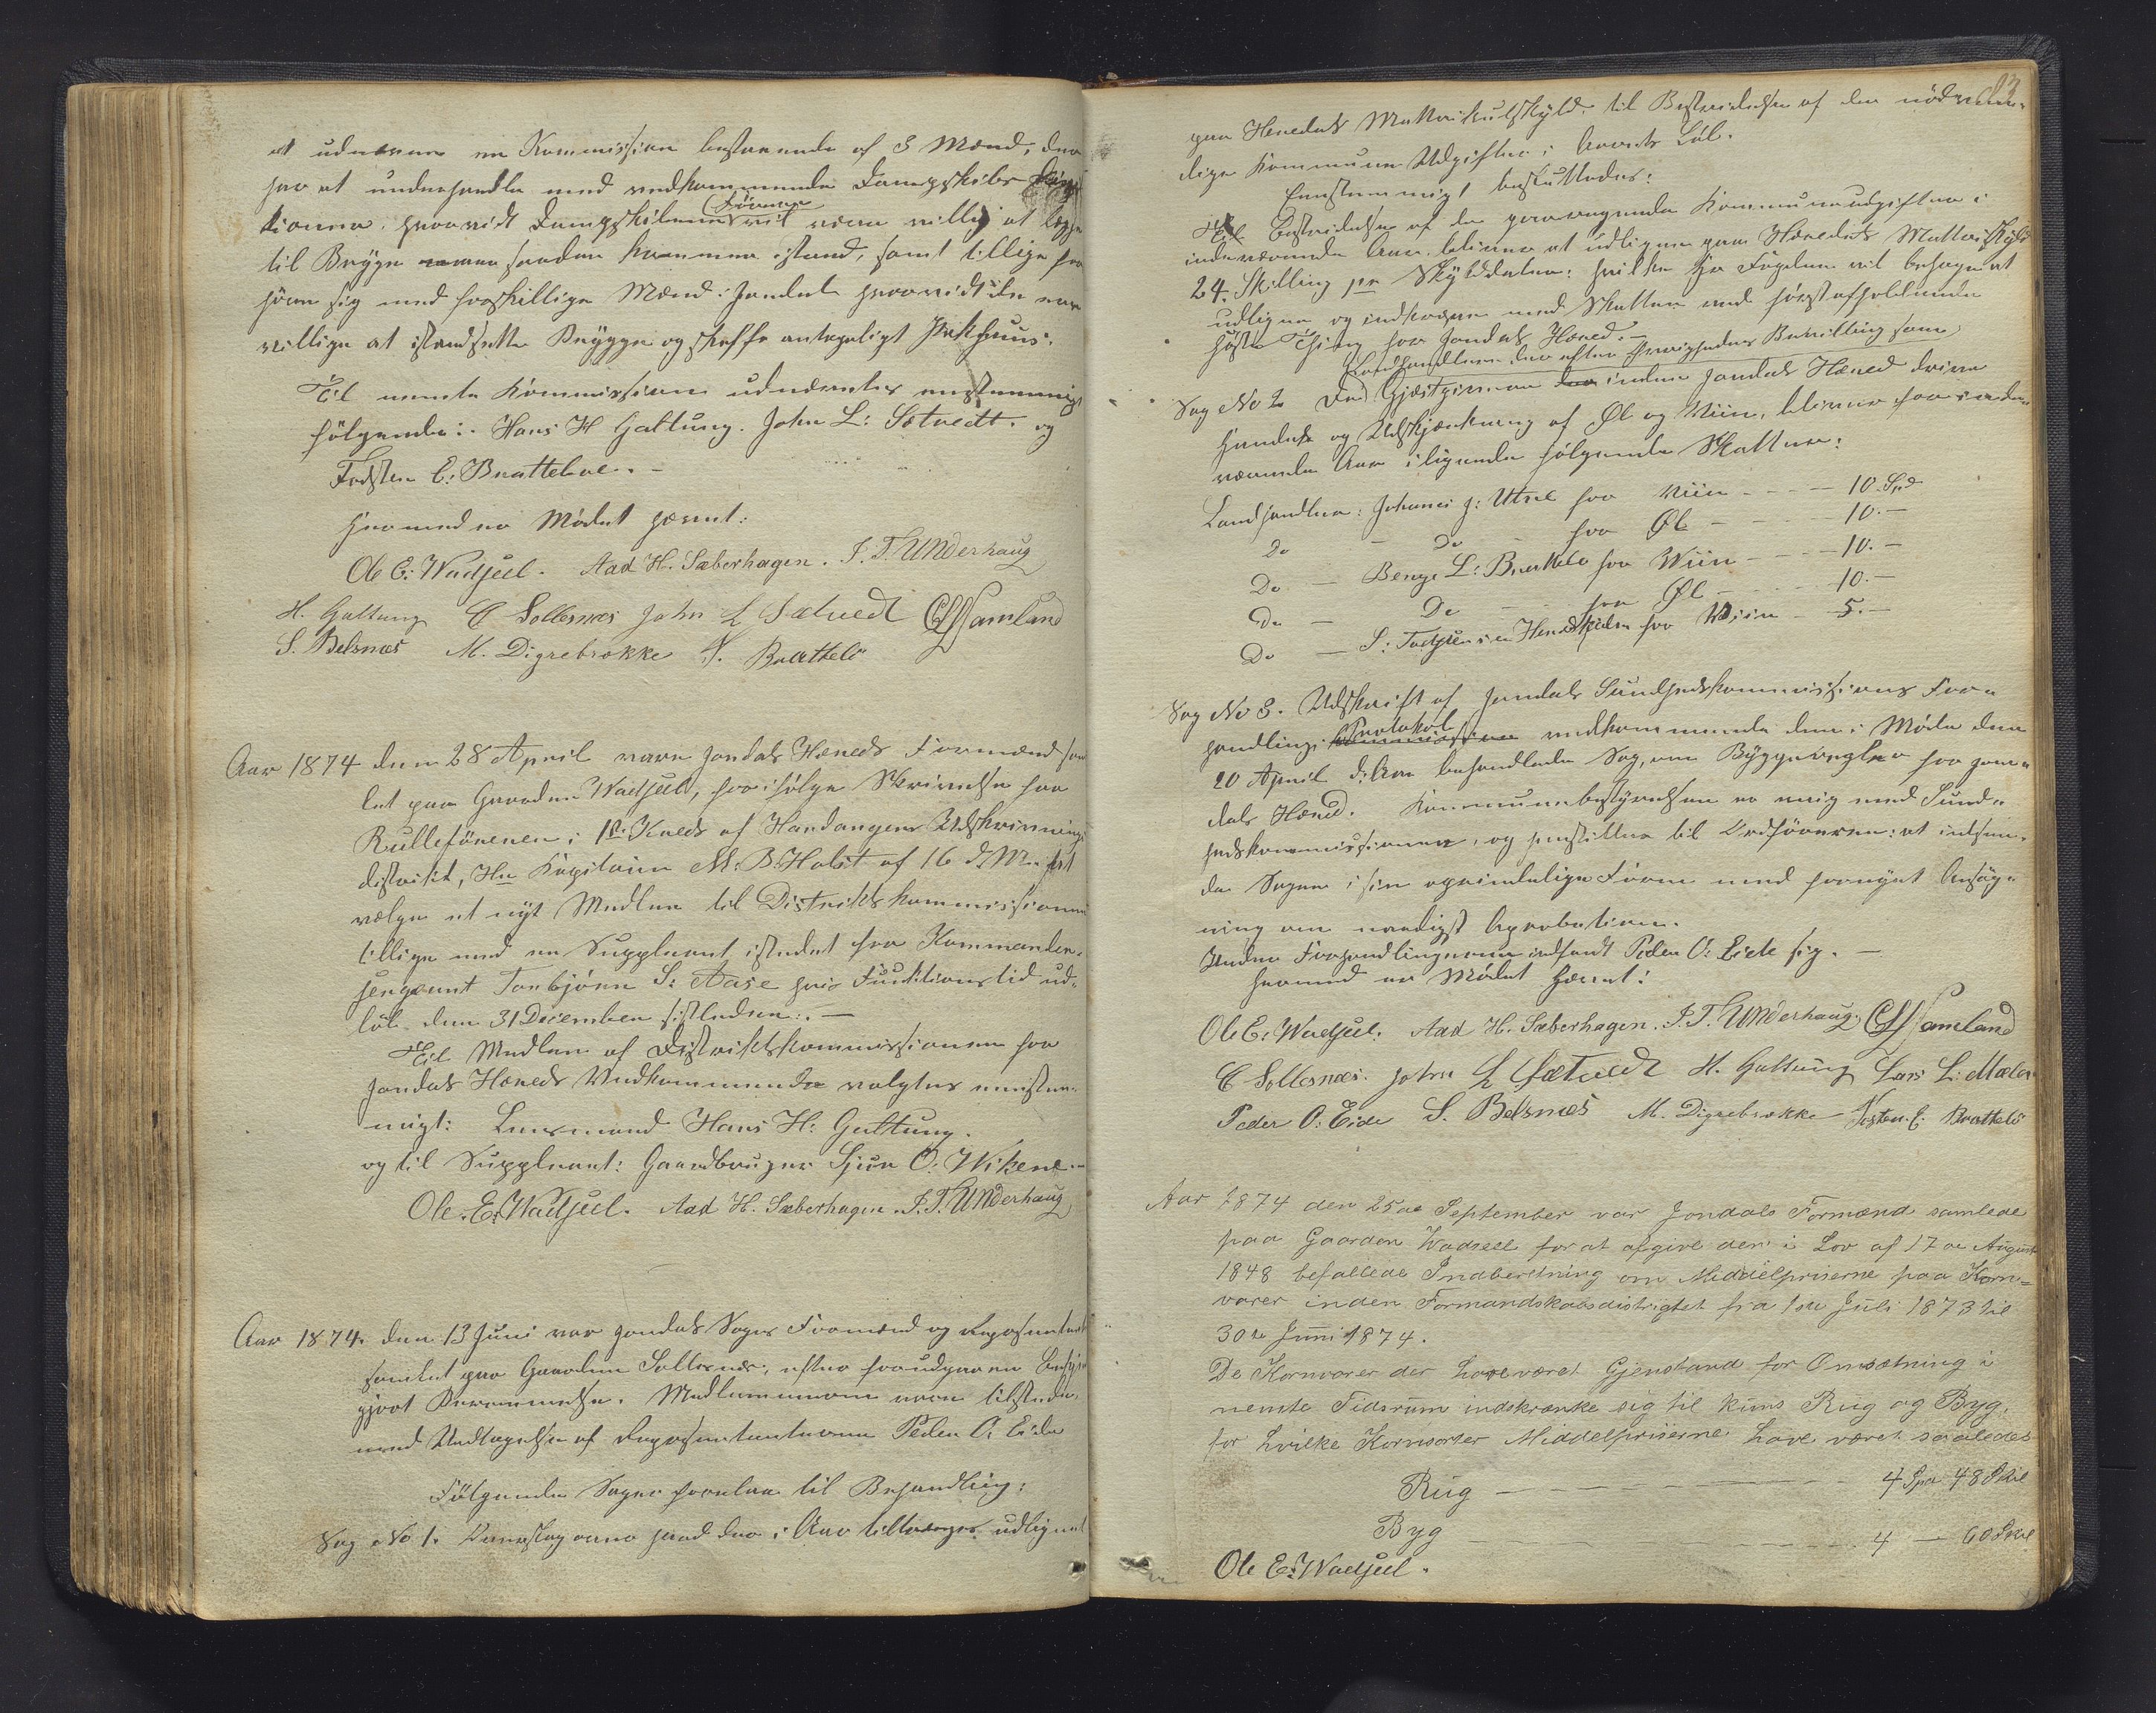 at udnævne en Kommission bestaaende af 3 Mænd, der
har at underhandle med vedkommende Dampskibs
tionner, hvorvidt Dampskibenes Førere vil være villig at lægge
til Brygge saadan kommer istand, samt tillige for
høre sig med forskillige Mænd i Jondal hvorvidt de ere
villige at istandsætte Brygge og skaffe antageligt Pakhuus.
Til nemte Kommission udnævntes enstemmigt
følgende: Hans H Galtung. John L: Sætvedt. og
Torsten E: Bratteboe. –
Hermed er Mødet hævet:
Ole E: Wadseel. Aad H. Sæberhagen. J. T. Underhaug
H. Galtung E Solesnæs John L Sætvedt C H Samland
S. Belsnæs M. Digrebrække T. Brattebø
Aar 1874 den 28 April vare Jondals Hereds Formænd sam
let paa Gaarden Wadseel, for ifølge Skrivelse fra
Rulleføreren i 1ste Kreds af Hardangers Udskrivnings
distrikt, Hr Kapitain M. B. Holst af 16 d. M. at
vælge et nyt Medlem til Distrikts kommissionen
tillige med en Suppleant istedet for Kommander-
sergeant Torbjørn S: Aase hvis Funktionstid ud-
løb den 31 December sistleden. –
Til Medlem af Distriktskommissionen for
Jondals Hereds Vedkommende valgtes enstem-
migt: Lensmand Hans H: Galtung.
og til Suppleant: Gaardbruger Sjur O: Wikene. –
Ole. E. Wadseel. Aad H. Sæberhagen. J. T. Underhaug
Aar 1874. den 13 Juni var Jondals Sogns Formænd og Repræsentant
samlet paa Gaarden Solesnæs, efter forudgaaen
gjort Berammelse. Medlemmerne vare tilstede,
med Undtagelse af Repræsentanterne Peder O. Eide
Følgende Sager forelaa til Behandling:
Sag No 1. hvad der i Aar udlignet
paa Heredets Mattrikulskyld til Bestridelse af den nødven-
dige Kommune Udgifter i Aarets Løb.
Eenstemmigt besluttedes:
Til Bestridelse af de paaregnende Kommuneudgifter i
indeværende Aar, bliver at udligne paa Heredets Mattriskyld
24. Skilling pr Skylddaler: hvilke Hr Fogden vil behage at
udligne og indkræve med Skatten ved først afholdende
Høste Thing for Jondals Hered. –
Landhandlere der efter Øvrighedens Bevilling samt
Sag No 2 De Gjæstgivere der inden Jondals Hered drive
Handel og Udskjænkning af Øl og Viin, bliver for inde-
værende Aar ilignende følgende Skatter:
Landhandler: Johanes J: Utne for Viin – – – 10 Spd
Do – Do – for Øl – – – 10. –
Do – Berge L: Brattebø for Wiin – – – 10. –
Do – Do – for Øl – – – 10. –
Do – S: for Wiin – 5. –
Sag No 3. Udskrift af Jondals Sundhedskommissions For-
handlings Protokol vedkommende den i Møde den
20 April d: Aar behandlede Sag, om Byggeregler for Jon-
dals Hered. Kommunebestyrelsen er enig med Sund-
hedskommissionen, og henstiller til Ordføreren: at indsen-
de Sagen i sin oprindelige Form med fornyet Ansøg-
ning om naadigst Aprobation.
Under Forhandlingerne indfandt Peder O: Eide sig. –
Hermed er Mødet hævet:
Ole E: Wadseel. Aad H. Sæberhagen. J. T. Underhaug. C H Samland
E Solesnæs. John L Sætvedt H. Galtung Lars L: Mæle
Peder O: Eide S. Belsnæs M. Digrebrække Tosten. E. Brattebø
Aar 1874 den 25de September var Jondals Formænd samlede
paa Gaarden Wadseel for at afgive den i Lov af 17de August
1848 befallede Indberetning om Middelpriserne paa Korn-
varer inden Formandskabsdistrigtet fra 1ste Juli 1873 til
30te Juni 1874.
De Kornvarer der have været Gjenstand for Omsætning i
nemte Tidsrum indskrænke sig til kuns Rug og Byg,
for hvilke Kornsorter Middelpriserne have været saaledes
Rug – – – 4 Spd 48 Skil
Byg – – – 4 – 60 Skil
Ole E. Wadseel.